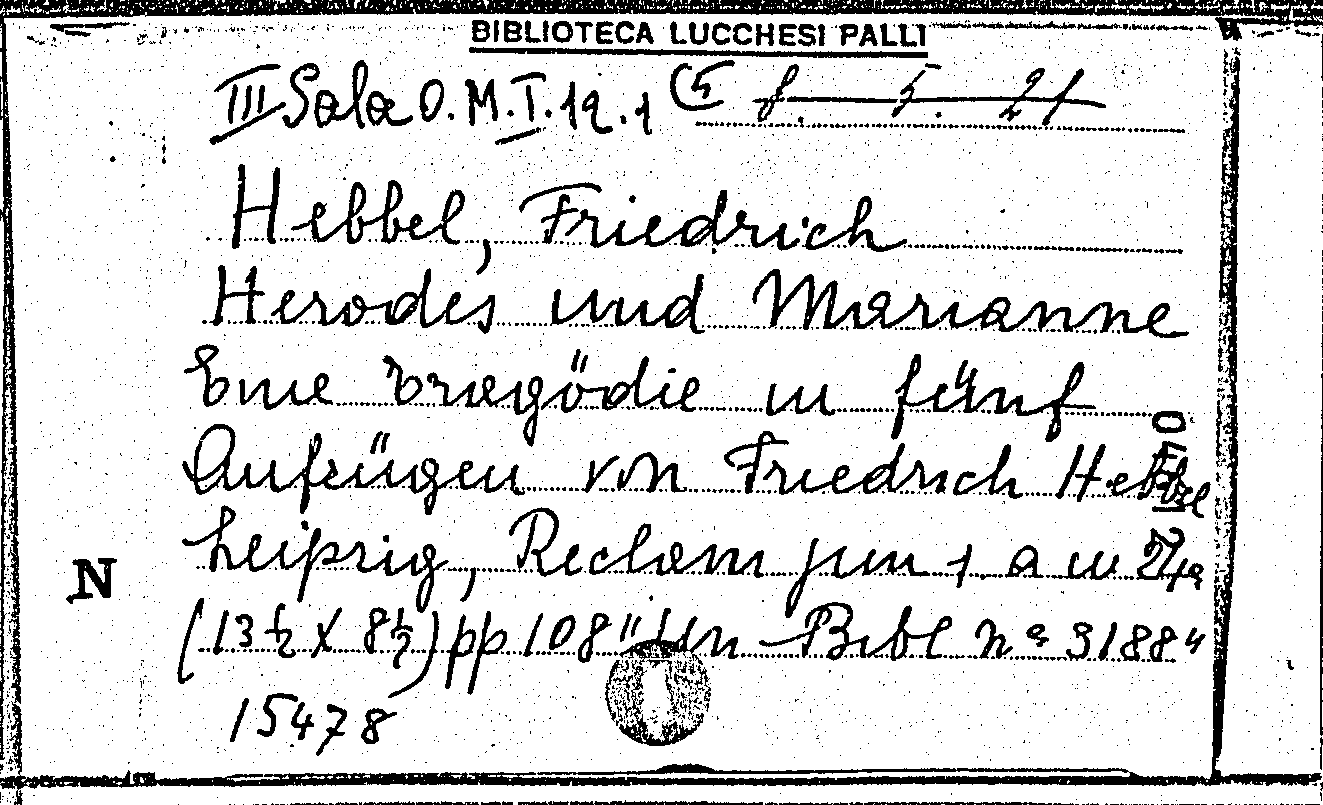 BIBLIOTECA LUCCHESI PALLI
III Sala O.M.I.12.1 (5 8. 5. 21
Hebbel, Friedrich
Herodes und Marianne
Eine Tragödie in fünf
Aufzügen von Friedrich Hebbel
Leipzig, Reclam jun s. a in
(13½ X 8½) pp 108 "Un Bibl nº 3188"
15478
N